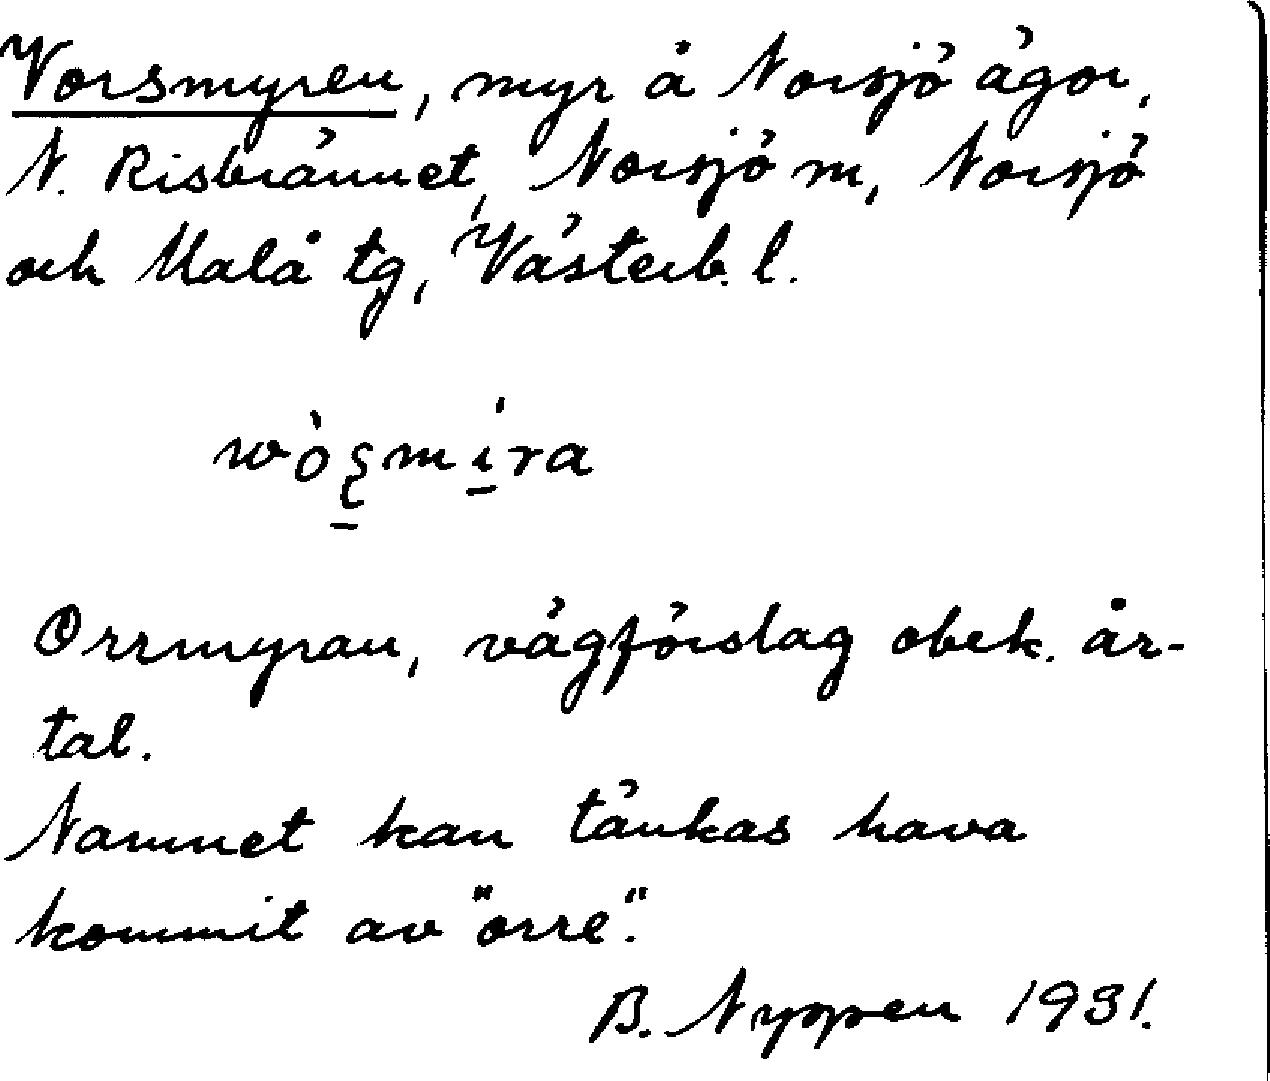 Vorsmyren, myr å Norsjö ägor,
N. Risbrännet, Norsjö m, Norsjö
och Malå tg, Västerb. l.
Orrmyran, vägförslag obek. år-
tal.
Namnet kan tänkas hava
kommit av "orre".
B. Nyppen 1931.